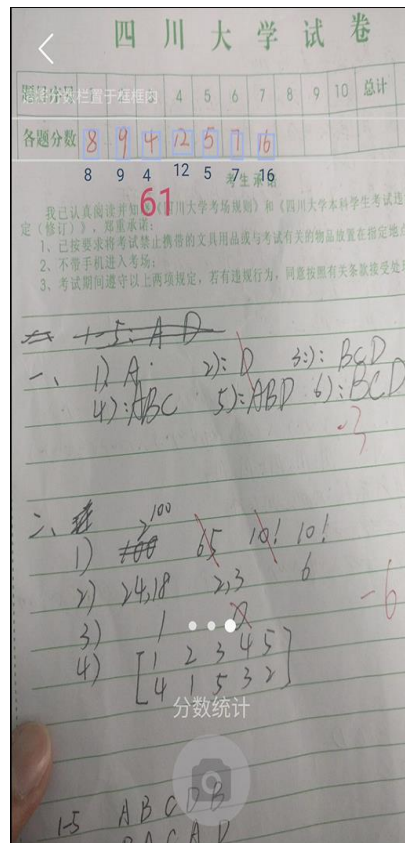 四川大学试卷
4 5 6 7 8 9 10 总计
各题分数 8 9 4 12 5 7 16
8 9 4 12 5 7 16
考生承诺
61
我已认真阅读并知 《四川大学考场规则》和《四川大学本科学生考试违
定（修订）》，郑重承诺：
1、已按要求将考试禁止携带的文具用品或与考试有关的物品放置在指定地点
2、不带手机进入考场；
3、考试期间遵守以上两项规定，若有违规行为，同意按照有关条款接受处理
一、 1) A 2): D 3): BCD
4):ABC 5):ABD 6):BCD
-3
二、
1) 2^100 65 10! 10!
2) 24,18 2,3 6
-6
3) 1 0
4) [1 2 3 4 5
4 1 5 3 2]
分数统计
1-5 A B C D B
B A C A D